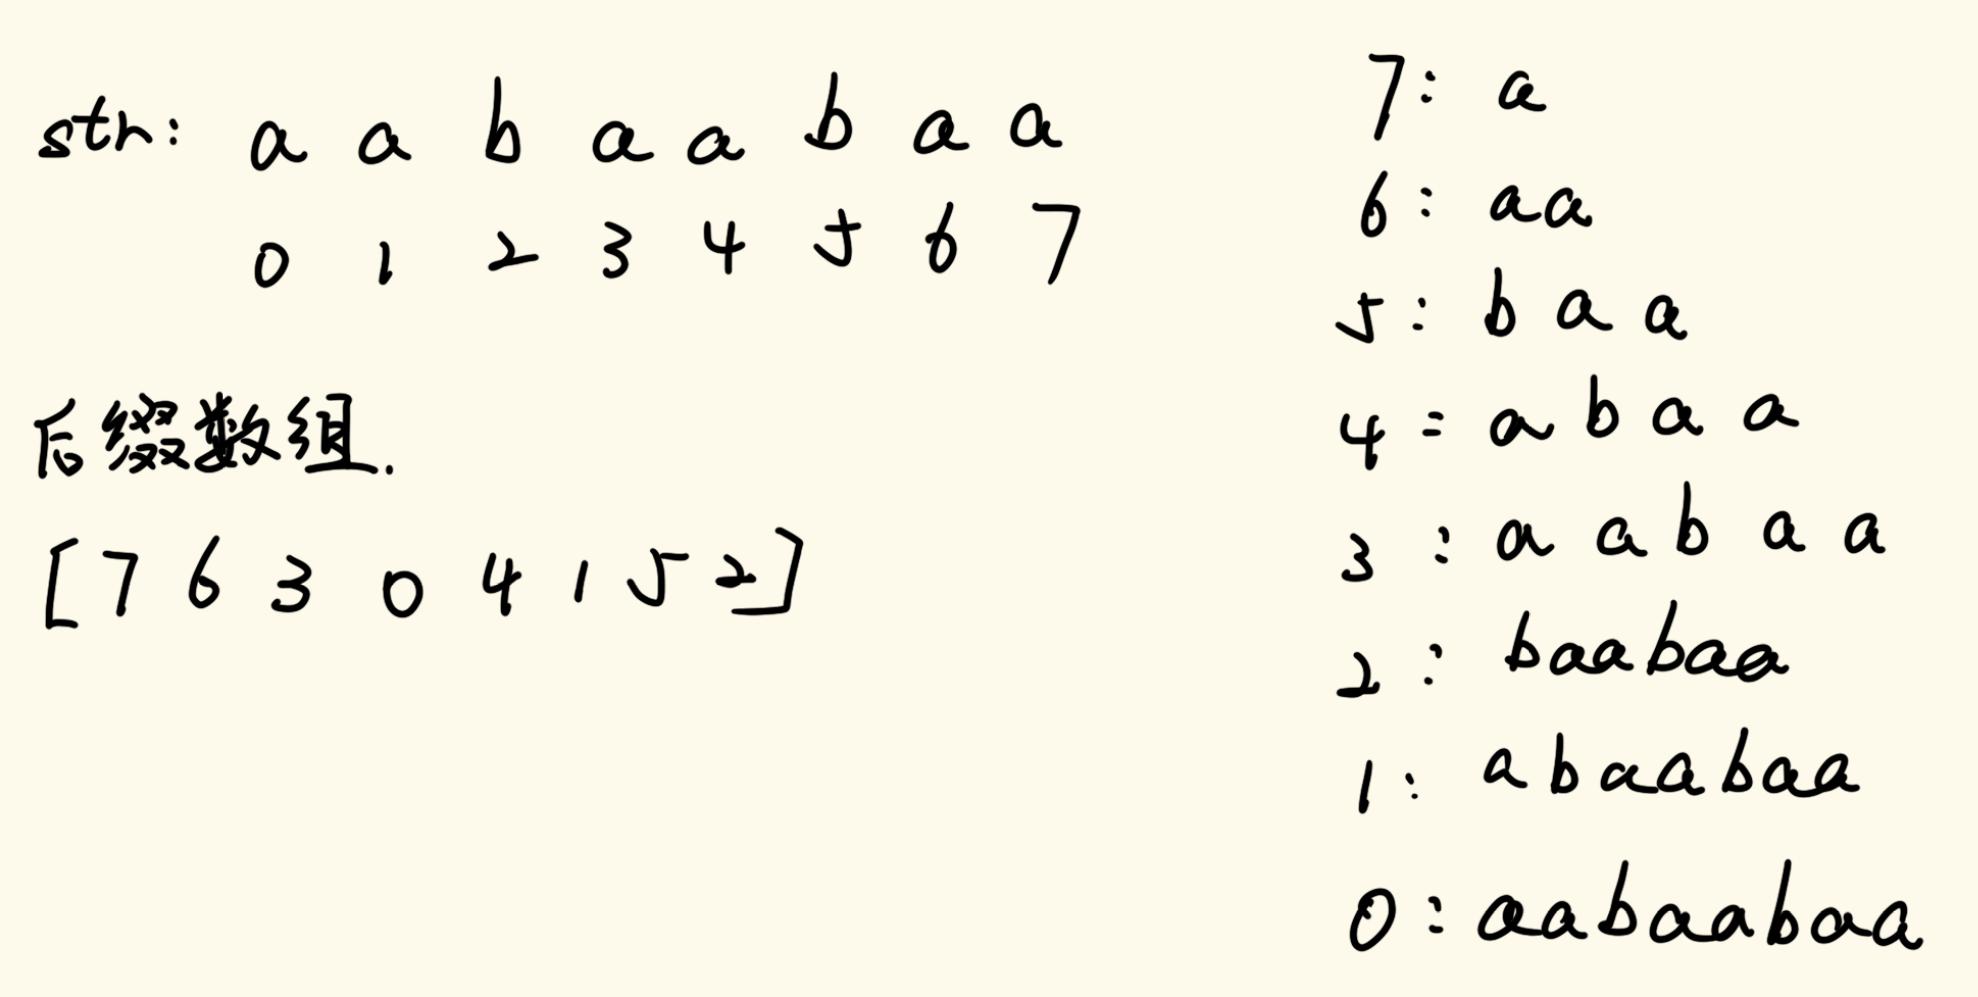 str: a a b a a b a a
0 1 2 3 4 5 6 7
后缀数组.
[7 6 3 0 4 1 5 2]
7: a
6: aa
5: b a a
4: a b a a
3: a a b a a
2: baabaa
1: abaabaa
0: aabaabaa